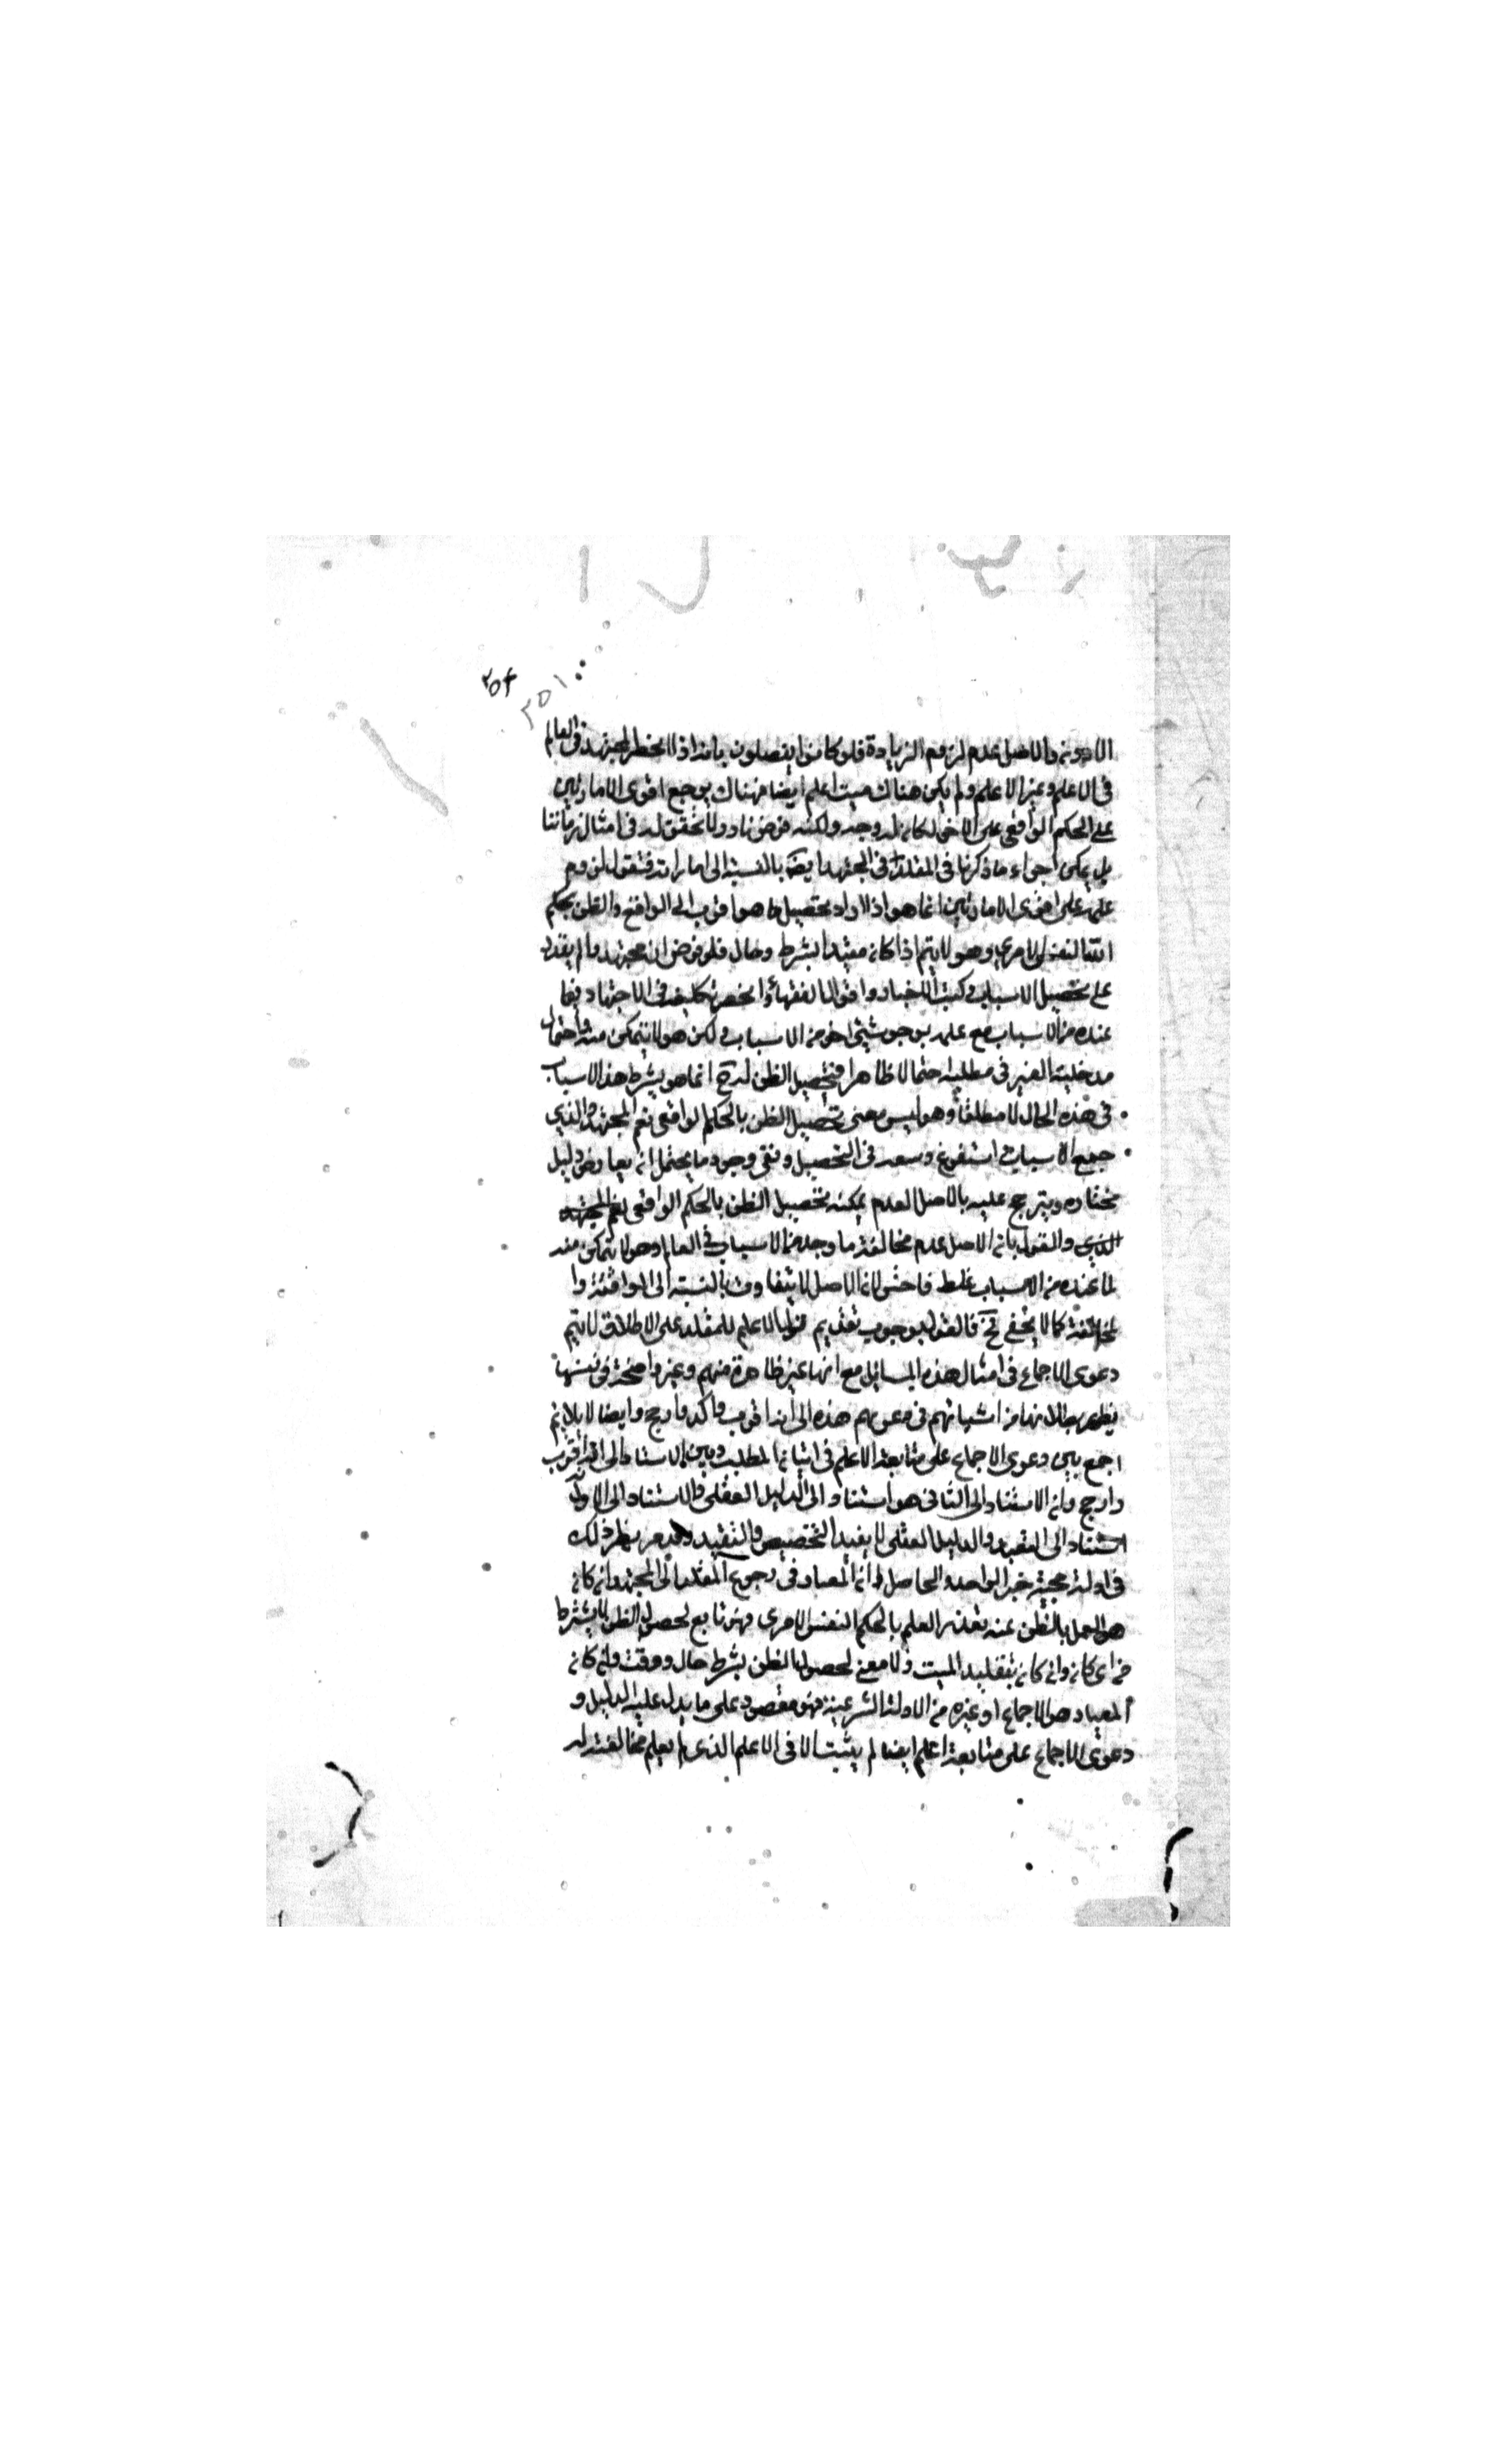 ٢٥٤
٢٥١
الادونه والاصل عدم لزوم الزيادة فلو كانوا يفصلون بانه اذا انحصر المجتهد فى العالم
فى الاعلم وغير الاعلم ولم يكن هناك ميت اعلم ايضا فهناك يرجع اقوى الامارتين
على الحكم الواقعى على الاخر لكان له وجه ولكنه فرض نادر ولا تحقق له فى امثال زماننا
بل يمكن اجراء ما ذكرنا فى المقلد فى المجتهد ايضا بالنسبة الى اماراته فنقول لزوم
عمله على اقوى الامارتين انما هو اذا اراد تحصيل ما هو اقرب الى الواقع والظن بحكم
الله النفس الامرى وهو لا يتم اذا كان مقيدا بشرط وحال فلو فرض انه مجتهد ولم يقدر
على تحصيل الاسباب وكتب الاخبار واقوال الفقهاء وانحصر تكليفه فى الاجتهاد بما
عنده من الاسباب مع علمه بوجود شيئ اخر من الاسباب ولكن هو لا يتمكن منه واحتمال
مدخلية الغير فى مطلبه احتمالا ظاهرا فتحصيل الظن له ح انما هو بشرط هذه الاسباب
فى هذه الحال لا مطلقا وهو ليس معنى تحصيل الظن بالحكم الواقعى نعم المجتهد الذى
جمع الاسباب استفرغ وسعه فى التحصيل ونفى وجود ما يحتمل ان يعارض دليل
مختاره ويترجح عليه بالاصل العدم يمكنه تحصيل الظن بالحكم الواقعى نعم المجتهد
الذى والقول بان الاصل عدم مخالفة ما وجد من الاسباب فى العالم وهو لا يتمكن منه
لما عنده من الاسباب غلط فاحش لان الاصل لا يتفاوت بالنسبة الى الموافقة وا
لمخالفة كما لا يخفى فح فالقول بوجوب تقديم قول الاعلم للمقلد على الاطلاق لا يتم
دعوى الاجماع فى امثال هذه المسائل مع انها غير ظاهرة منهم وغير واضحة فى نفسها
يظهر بطلانها من استنادهم فى دعويهم هذه الى انه اقرب واكد وارجح وايضا لا يلائم
اجمع بين دعوى الاجماع على متابعة الاعلم فى اثبات المطلب وبين الاستناد الى انه اقرب
وارجح وان الاستناد الى الثانى هو استناد الى الدليل العقلى والاستناد الى الاول
استناد الى التعبد والدليل العقلى لا يفيد التخصيص والتقييد وقد مر نظير ذلك
فى ادلة حجية خبر الواحد والحاصل ان المعيار فى رجوع المقلد الى المجتهد ان كان
هو العمل بالظن عند تعذر العلم بالحكم النفس الامرى فهو تابع لحصول الظن لا بشرط
من اى كان وان كان بتقليد الميت ولا معنى لحصول الظن بشرط حال ووقت وان كان
المعيار هو الاجماع او غيره من الادلة الشرعية فهو مقصور على ما يدل عليه الدليل و
دعوى الاجماع على متابعة اعلم ايضا لم يثبت الا فى الاعلم الذى لم يعلم مخالفته له